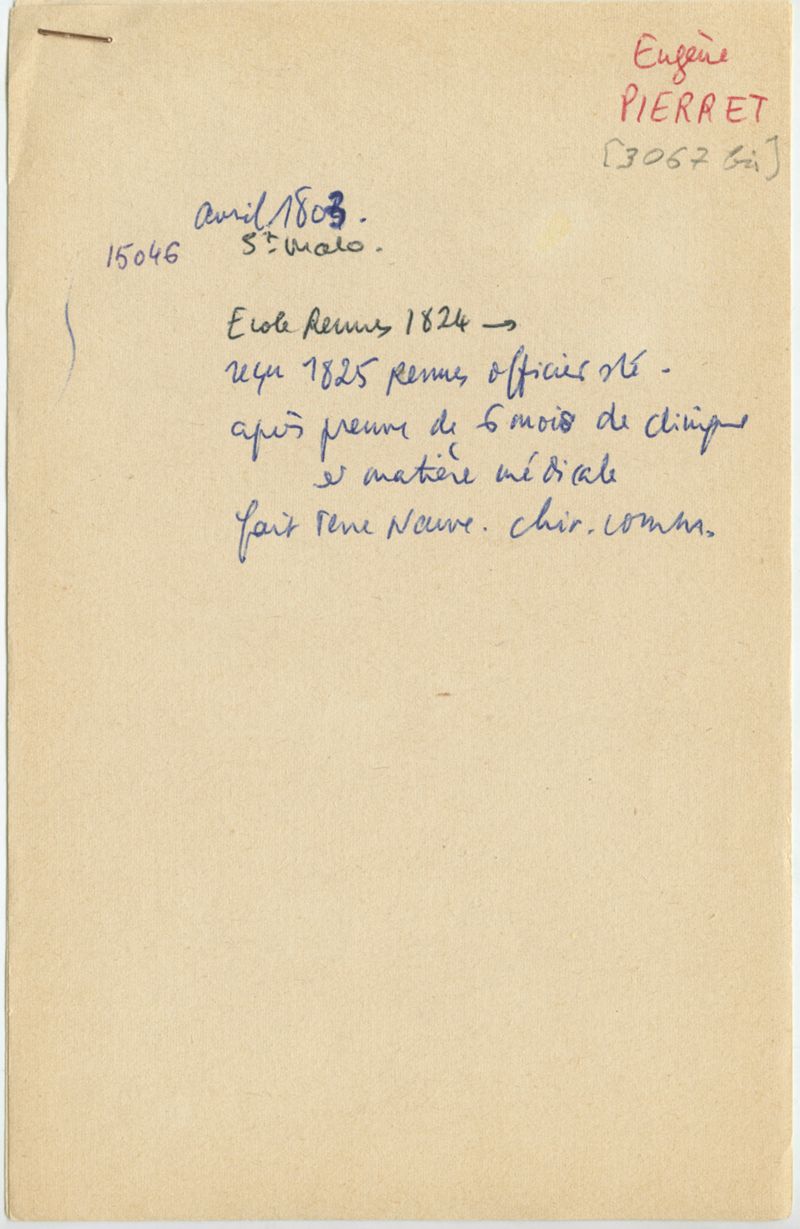 Eugène
PIERRET
[3067 bis]
avril 1803.
15046 St Malo.
Ecole Rennes 1824 →
reçu 1825 Rennes officier sté.
après preuve de 6 mois de clinique
et matière médicale
fait Terre Neuve. chir. comm.